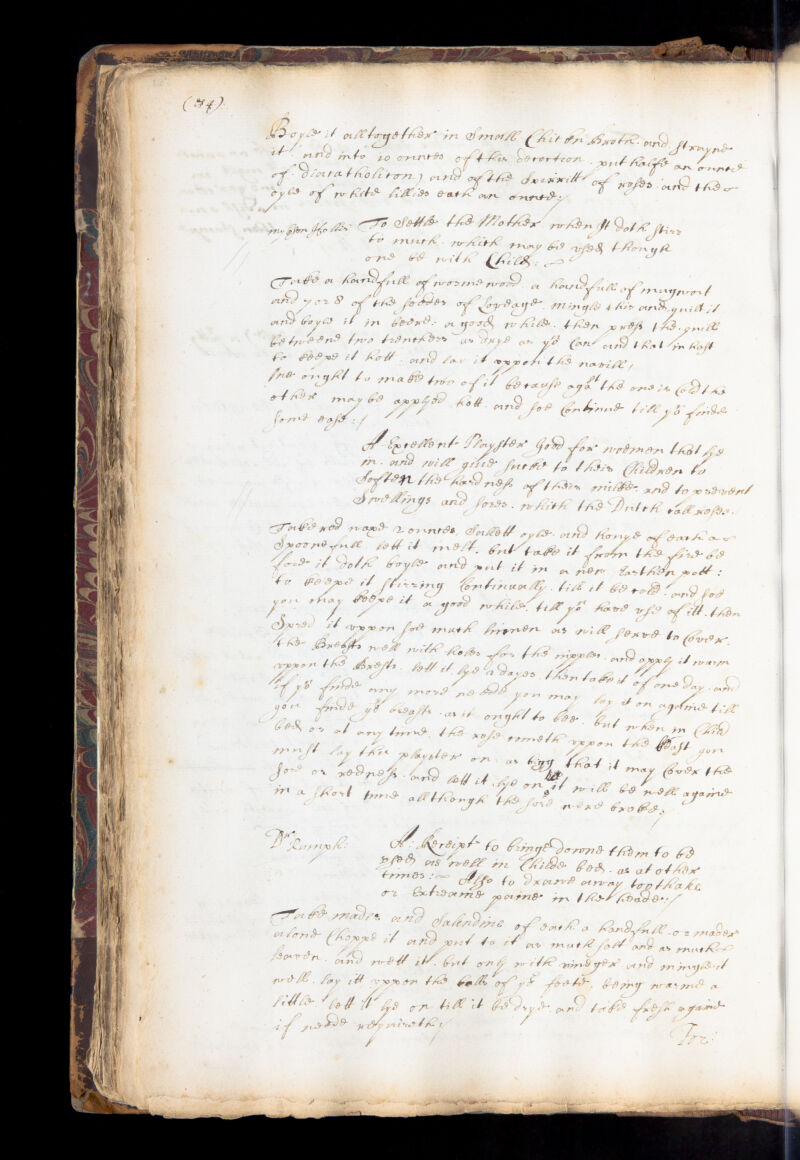 (84)
Boyle it alltogether in Small Chicken Broth and strayne
it and into 10 ounces of this decoction put halfe an ounce
of diacatholicon, and of the Spirritt of roses and the
oyle of white lillies each an ounce /
To Settle the Mother when It doth stirr
to much which may be vsed though
one be with Child:
Take a handfull of wormewood a handfull of mugwort
and 7 or 8 of the seedes of Loveage mingle this and quilt it
and boyle it in beere a good while then press the quilt
betweene two trenchers as drye as yo Can and that in hast
to keepe it hott and lay it vppon the navill,
one ought to make two of it because agst the one is Cold the
other may be applyed hott and soe Continue till yo finde
some ease:/
A Excellent Playster Good for woemen that lye
in and will giue sucke to their Children to
Soften the hardness of their milke and to prevent
Swellings and sores which the Dutch call roses.
Take red waxe 2 ounces Sallett oyle and honye of each a
Spoonefull lett it melt but take it from the fire be
fore it doth boyle and put it in a new Earthen pott:
to keepe it stirring Continually till it be cold and soe
you may keepe it a good while till yo have vse of itt then
Spred it vppon soe much linnen as will serve to Cover
the Breasts well with holes for the nipples and apply it warm
vppon the Brests lett it lye 2 dayes then take it of one day and
if yo finde any more neede you may lay it on againe till
you finde yo breasts as it ought to bee but when in Child
bed or at any time the rose cometh vppon the breast you
must lay this playster on as bigg that it may Cover the
sore or redness and lett it lye on it will be well againe
in a short time allthough the sore were broke /
Dr Rumph: A Receipt to bringe downe them to be
vsed as well in Childe bed as at other
times: Also to drawe away toothake
or Extreame paine in the heade:/
Take mader and Salendine of each a handfull or mader
alone Choppe it and put to it as much salt and as much
leaven and wett it but only with vineger and mingle it
well lay itt vppon the balls of yo feete, being warme a
little lett it lye on till it be drye and take fresh againe
if neede requireth /
For: